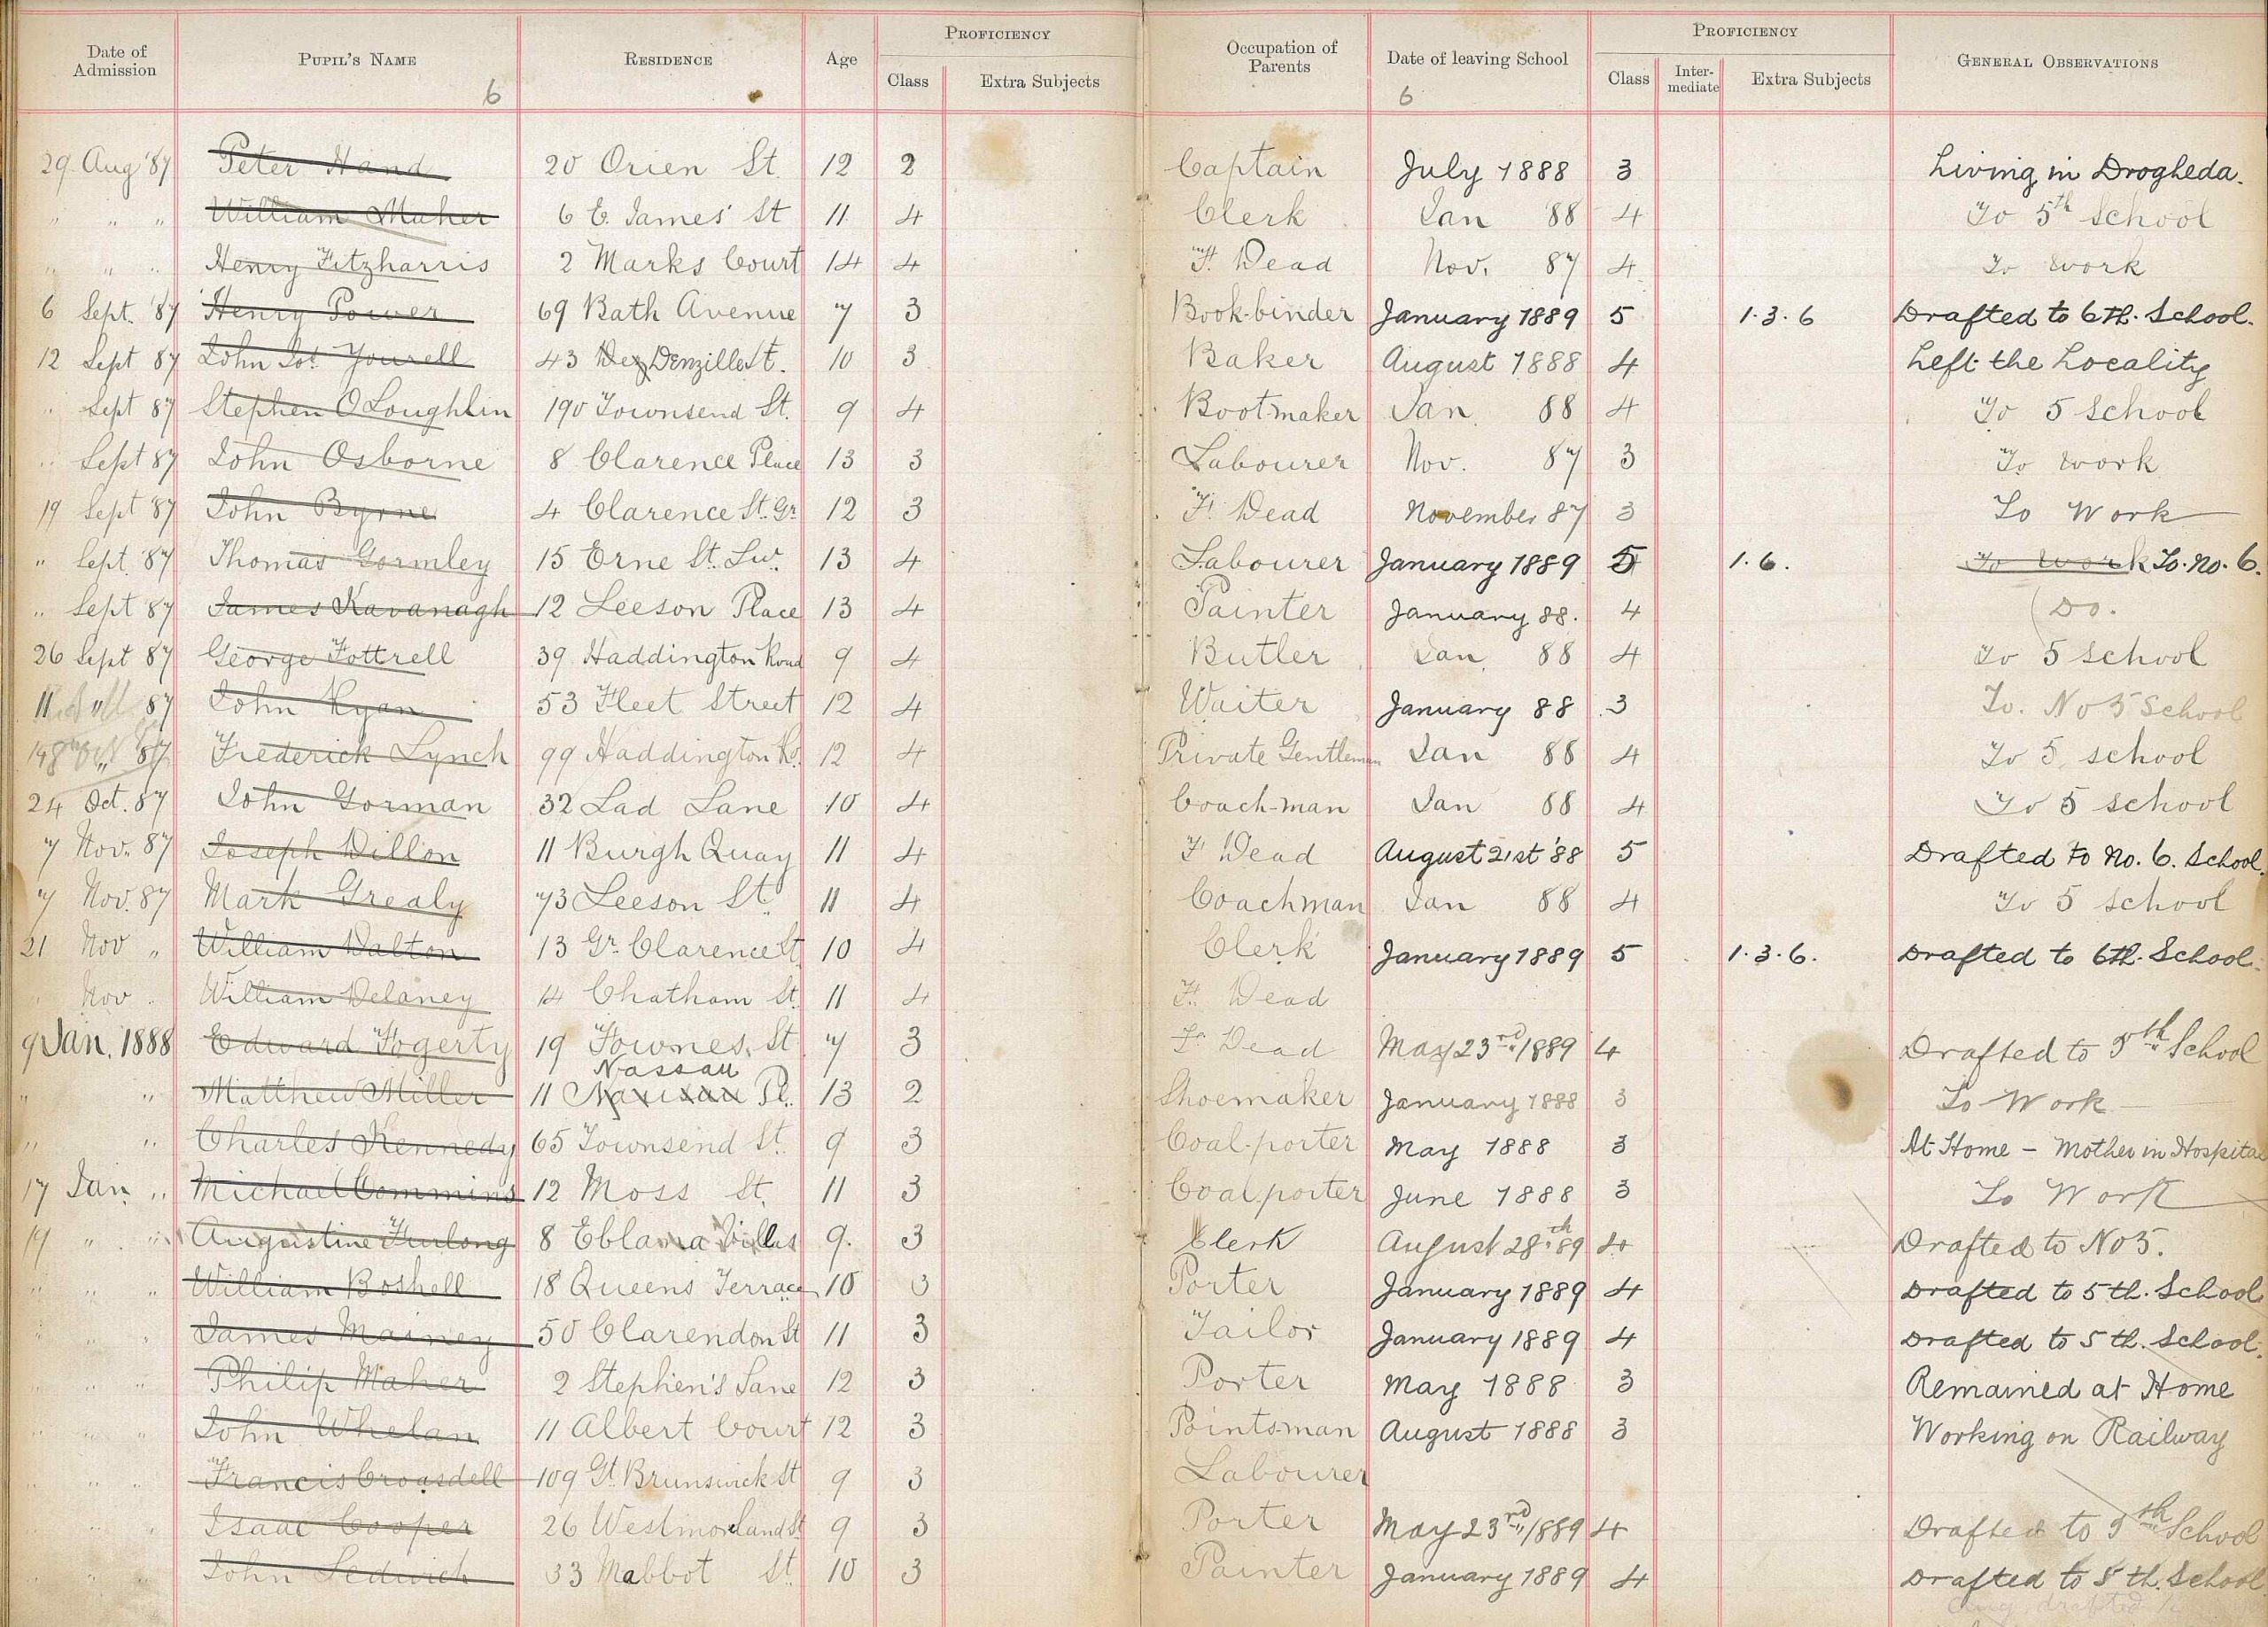 Date of Admission | Pupil's Name | Residence | Age | Proficiency | Class | Extra Subjects | Occupation of Parents | Date of leaving School | Proficiency | Class | Inter-mediate | Extra Subjects | General Observations
6 | 6
29 Aug '87 | Peter Hand | 20 Orien St. | 12 | 2 | Captain | July 1888 | 3 | Living in Drogheda.
" " " | William Maher | 6 E. James' St | 11 | 4 | Clerk | Jan 88 | 4 | To 5th School
" " " | Henry Fitzharris | 2 Marks Court | 14 | 4 | F. Dead | Nov. 87 | 4 | To work
6 Sept. '87 | Henry Power | 69 Bath Avenue | 7 | 3 | Book-binder | January 1889 | 5 | 1.3.6 | Drafted to 6th. School.
12 Sept 87 | John Jos. Yourell | 43 Denzille St. | 10 | 3 | Baker | August 1888 | 4 | Left the Locality
" Sept 87 | Stephen O Loughlin | 190 Townsend St. | 9 | 4 | Bootmaker | Jan 88 | 4 | To 5 School
" Sept 87 | John Osborne | 8 Clarence Place | 13 | 3 | Labourer | Nov. 87 | 3 | To work
19 Sept 87 | John Byrne | 4 Clarence St. Gr. | 12 | 3 | F. Dead | November 87 | 3 | To Work
" Sept. '87 | Thomas Gormley | 15 Erne St. Lw. | 13 | 4 | Labourer | January 1889 | 5 | 1.6. | To work To. No. 6.
" Sept 87 | James Kavanagh | 12 Leeson Place | 13 | 4 | Painter | January 88. | 4 | Do.
26 Sept 87 | George Fottrell | 39 Haddington Road | 9 | 4 | Butler | Jan 88 | 4 | To 5 school
11 " 87 | John Ryan | 53 Fleet Street | 12 | 4 | Waiter | January 88 | 3 | To. No 5 School
87 | Frederick Lynch | 99 Haddington Ro. | 12 | 4 | Private Gentleman | Jan 88 | 4 | To 5 school
24 Oct. 87 | John Gorman | 32 Lad Lane | 10 | 4 | Coach-man | Jan 88 | 4 | To 5 school
7 Nov. 87 | Joseph Dillon | 11 Burgh Quay | 11 | 4 | F. Dead | August 21st '88 | 5 | Drafted to No. 6. School.
7 Nov. 87 | Mark Grealy | 73 Leeson St. | 11 | 4 | Coachman | Jan 88 | 4 | To 5 school
21 Nov " | William Dalton | 13 Gr. Clarence St | 10 | 4 | Clerk | January 1889 | 5 | 1.3.6. | Drafted to 6th. School.
" Nov " | William Delaney | 14 Chatham St. | 11 | 4 | F. Dead
9 Jan. 1888 | Edward Fogerty | 19 Fownes. St | 7 | 3 | Fr Dead | May 23rd/1889 | 4 | Drafted to 5th School
" " | Matthew Miller | 11 Nassau Pl. | 13 | 2 | Shoemaker | January 1888 | 3 | To Work
" " | Charles Kennedy | 65 Townsend St. | 9 | 3 | Coal-porter | May 1888 | 3 | At Home - Mother in Hospital
17 Jan " | Michael Commins | 12 Moss St. | 11 | 3 | Coal porter | June 1888 | 3 | To Work
19 " " | Augustine Furlong | 8 Eblana Villas | 9. | 3 | Clerk | August 28th 89 | 4 | Drafted to No 5.
" " " | William Boshell | 18 Queens Terrace | 10 | 3 | Porter | January 1889 | 4 | Drafted to 5th. School
" " " | James Mainey | 50 Clarendon St | 11 | 3 | Tailor | January 1889 | 4 | Drafted to 5th. School.
" " " | Philip Maher | 2 Stephen's Lane | 12 | 3 | Porter | May 1888 | 3 | Remained at Home
" " " | John Whelan | 11 Albert Court | 12 | 3 | Pointsman | August 1888 | 3 | Working on Railway
" " " | Francis Croasdell | 109 Gt. Brunswick St | 9 | 3 | Labourer
" " | Isaac Cooper | 26 Westmoreland St | 9 | 3 | Porter | May 23rd/1889 | 4 | Drafted to 5th School
" " " | John Sedwich | 33 Mabbot St. | 10 | 3 | Painter | January 1889 | 4 | Drafted to 5th. School